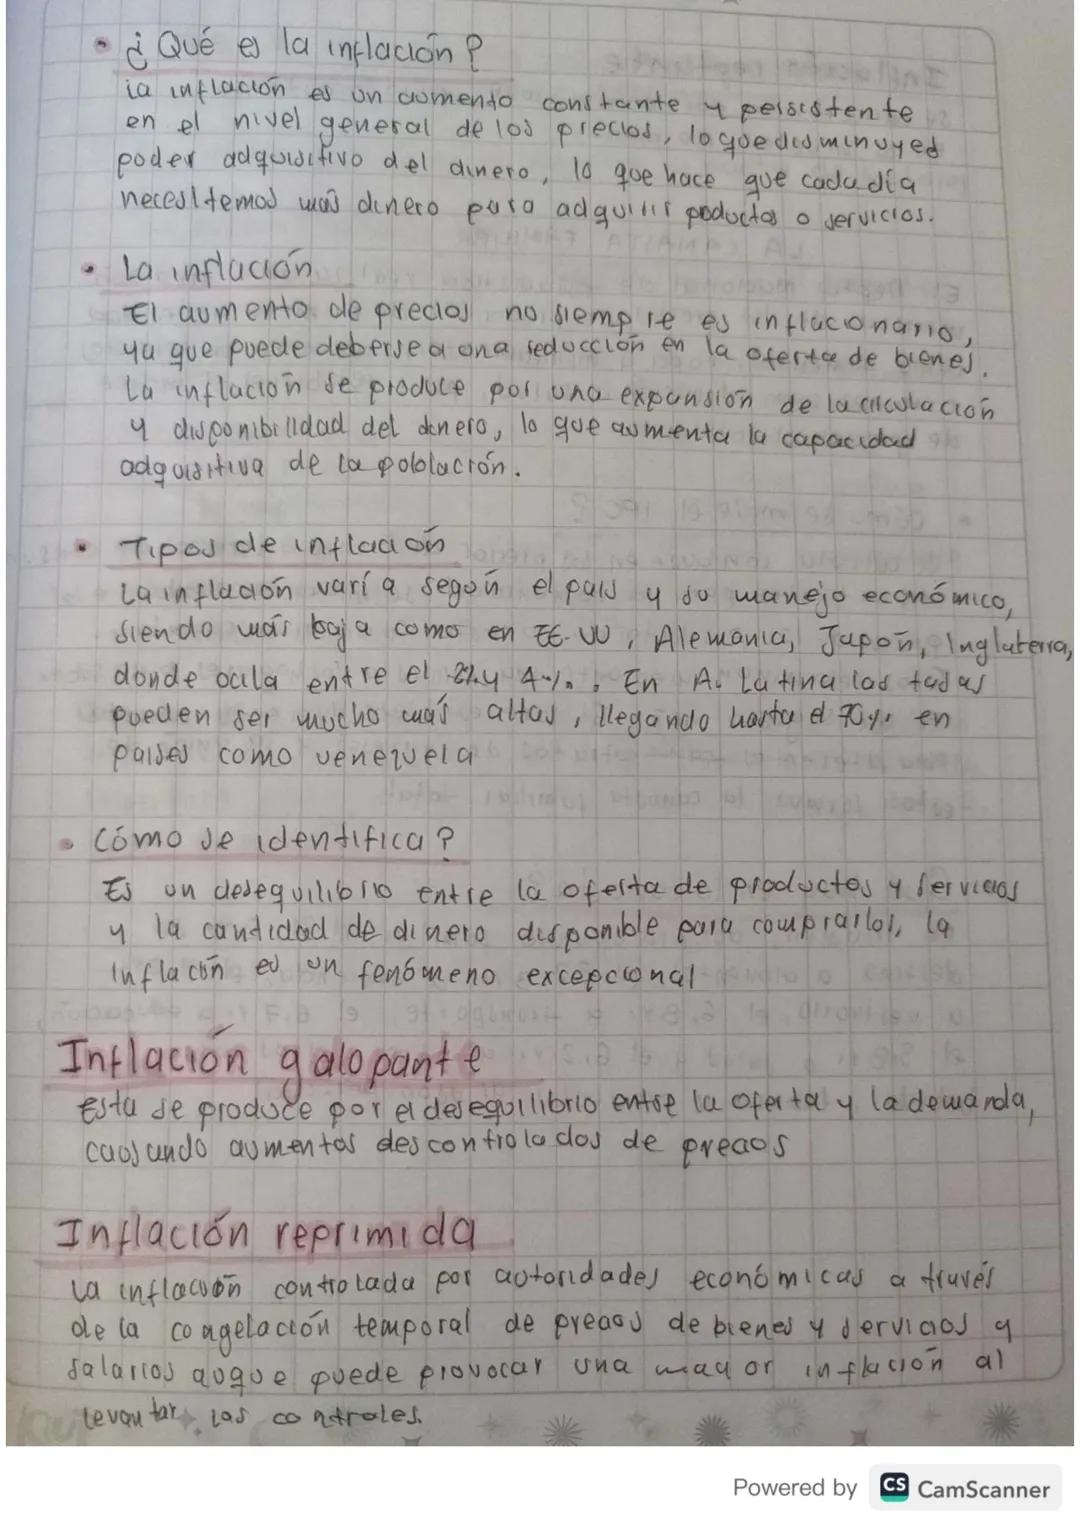 ¿Qué es la inflación?
La inflación es un aumento constante y persistente
en el nivel general de los precios, lo que disminuye d
poder adquisitivo del dinero, lo que hace que cada día
necesitemos más dinero para adquirir poductos o servicios.
La inflación
El aumento de precios no siempre es inflacionario,
ya que puede deberse a una reducción en la oferta de bienes.
La inflación se produce por una expansión de la circulación
y disponibilidad del dinero, lo que aumenta la capacidad
adquisitiva de la poblacrón.
Tipos de inflación
La inflación varía según el país y su manejo económico,
siendo más baja como en EE.UU, Alemania, Japón, Inglaterra,
donde ocila entre el 2% y 4%. En A. Latina las tadas
pueden ser mucho más altas, llegando hasta el 70% en
países como venezuela
Cómo se identifica?
Es un desequilibrio entre la oferta de productos y servicios
y la cantidad de dinero disponible para comprarlos, la
inflación es un fenómeno excepcional
Inflación galopante
Esta se produce por el desequilibrio entre la oferta y la demanda,
causando aumentos descontrolados de precios
Inflación reprimida
La inflación controlada por autoridades económicas a través
de la congelación temporal de precios de bienes y servicios y
salarios auque puede provocar una mayor inflación al
levantar las controles.
Powered by CS CamScanner